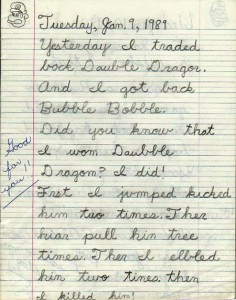 Tuesday, Jan. 9, 1989
Yesterday I traded
back Dauble Dragon.
And I got back
Bubble Bobble.
Did you know that
I wom Daubble
Dragom? I did!
First I jumped kicked
him two times. Then
hiar pull him tree
times. Then I elbled
him two times. then
I killed him!
Good
for
you!!